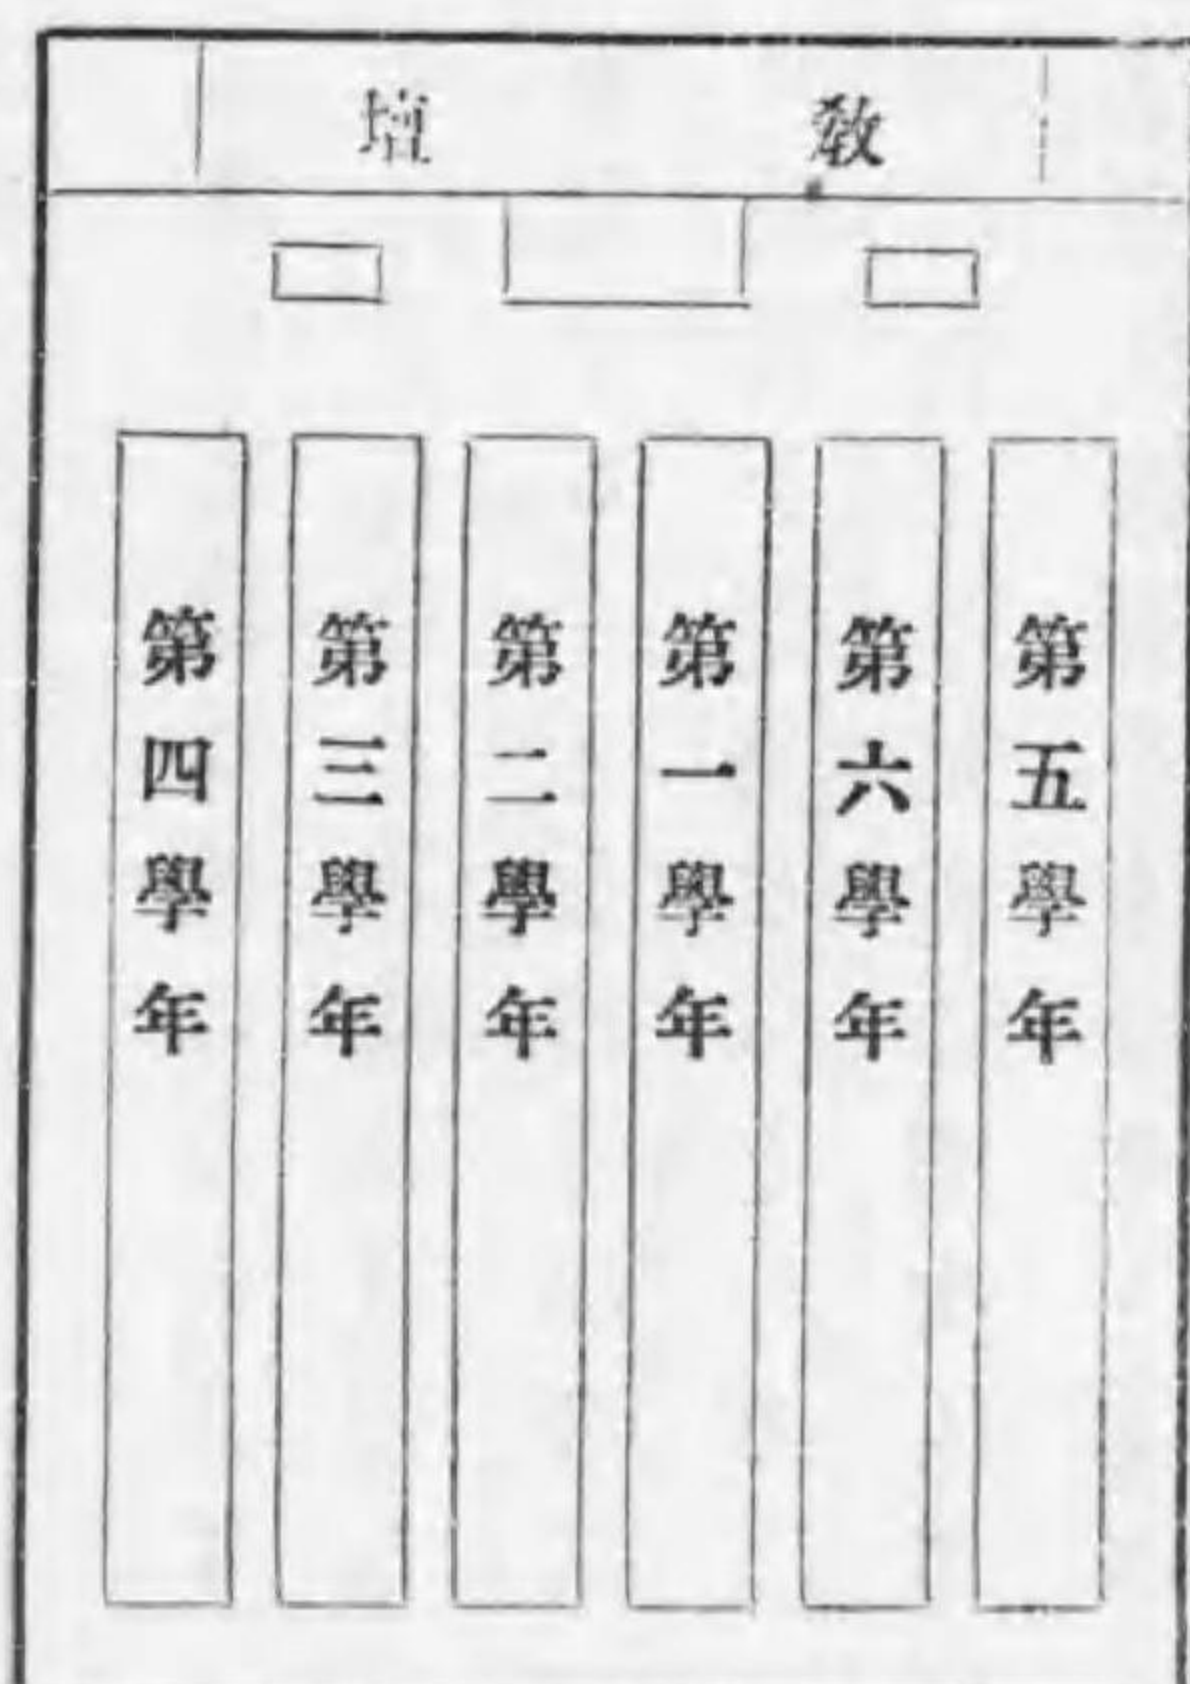 敎壇
第五學年
第六學年
第一學年
第二學年
第三學年
第四學年